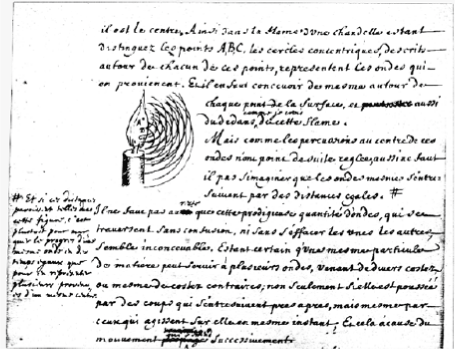 il est le centre, Ainsi dans la flame d'une chandelle estant
distinguez les points A, B, C. les cercles concentriques, descrits
autour de chacun de ces points, representent les ondes qui
en provienent. Et il en faut concevoir de mesme autour de
chaque point de la surface, et aussi
du dedans, de cette flame.
Mais comme les percussions au centre de ces
ondes n'ont point de suite reglee, aussi ne faut
il pas s'imaginer que les ondes mesmes s'entre
suivent par des distances egales. #
# Et si ces distances
paroissent telles dans
cette figure, c'est
plustost pour
le progres d'une
mesme onde en des
temps egaux que
pour en representer
plusieurs
d'un mesme centre
Il ne faut pas au reste que cette prodigieuse quantité d'ondes, qui se
traversent sans confusion, ni sans s'effacer les unes les autres,
semble inconcevable. Estant certain qu'une mesme particule
de matiere peut servir à plusieurs ondes, venant de divers costez
ou mesme de costez contraires; non seulement si elle est poussée
par des coups qui s'entresuivent pres a pres, mais mesme par
ceux qui agissent sur elle en mesme instant; Et cela a cause du
mouvement successivement